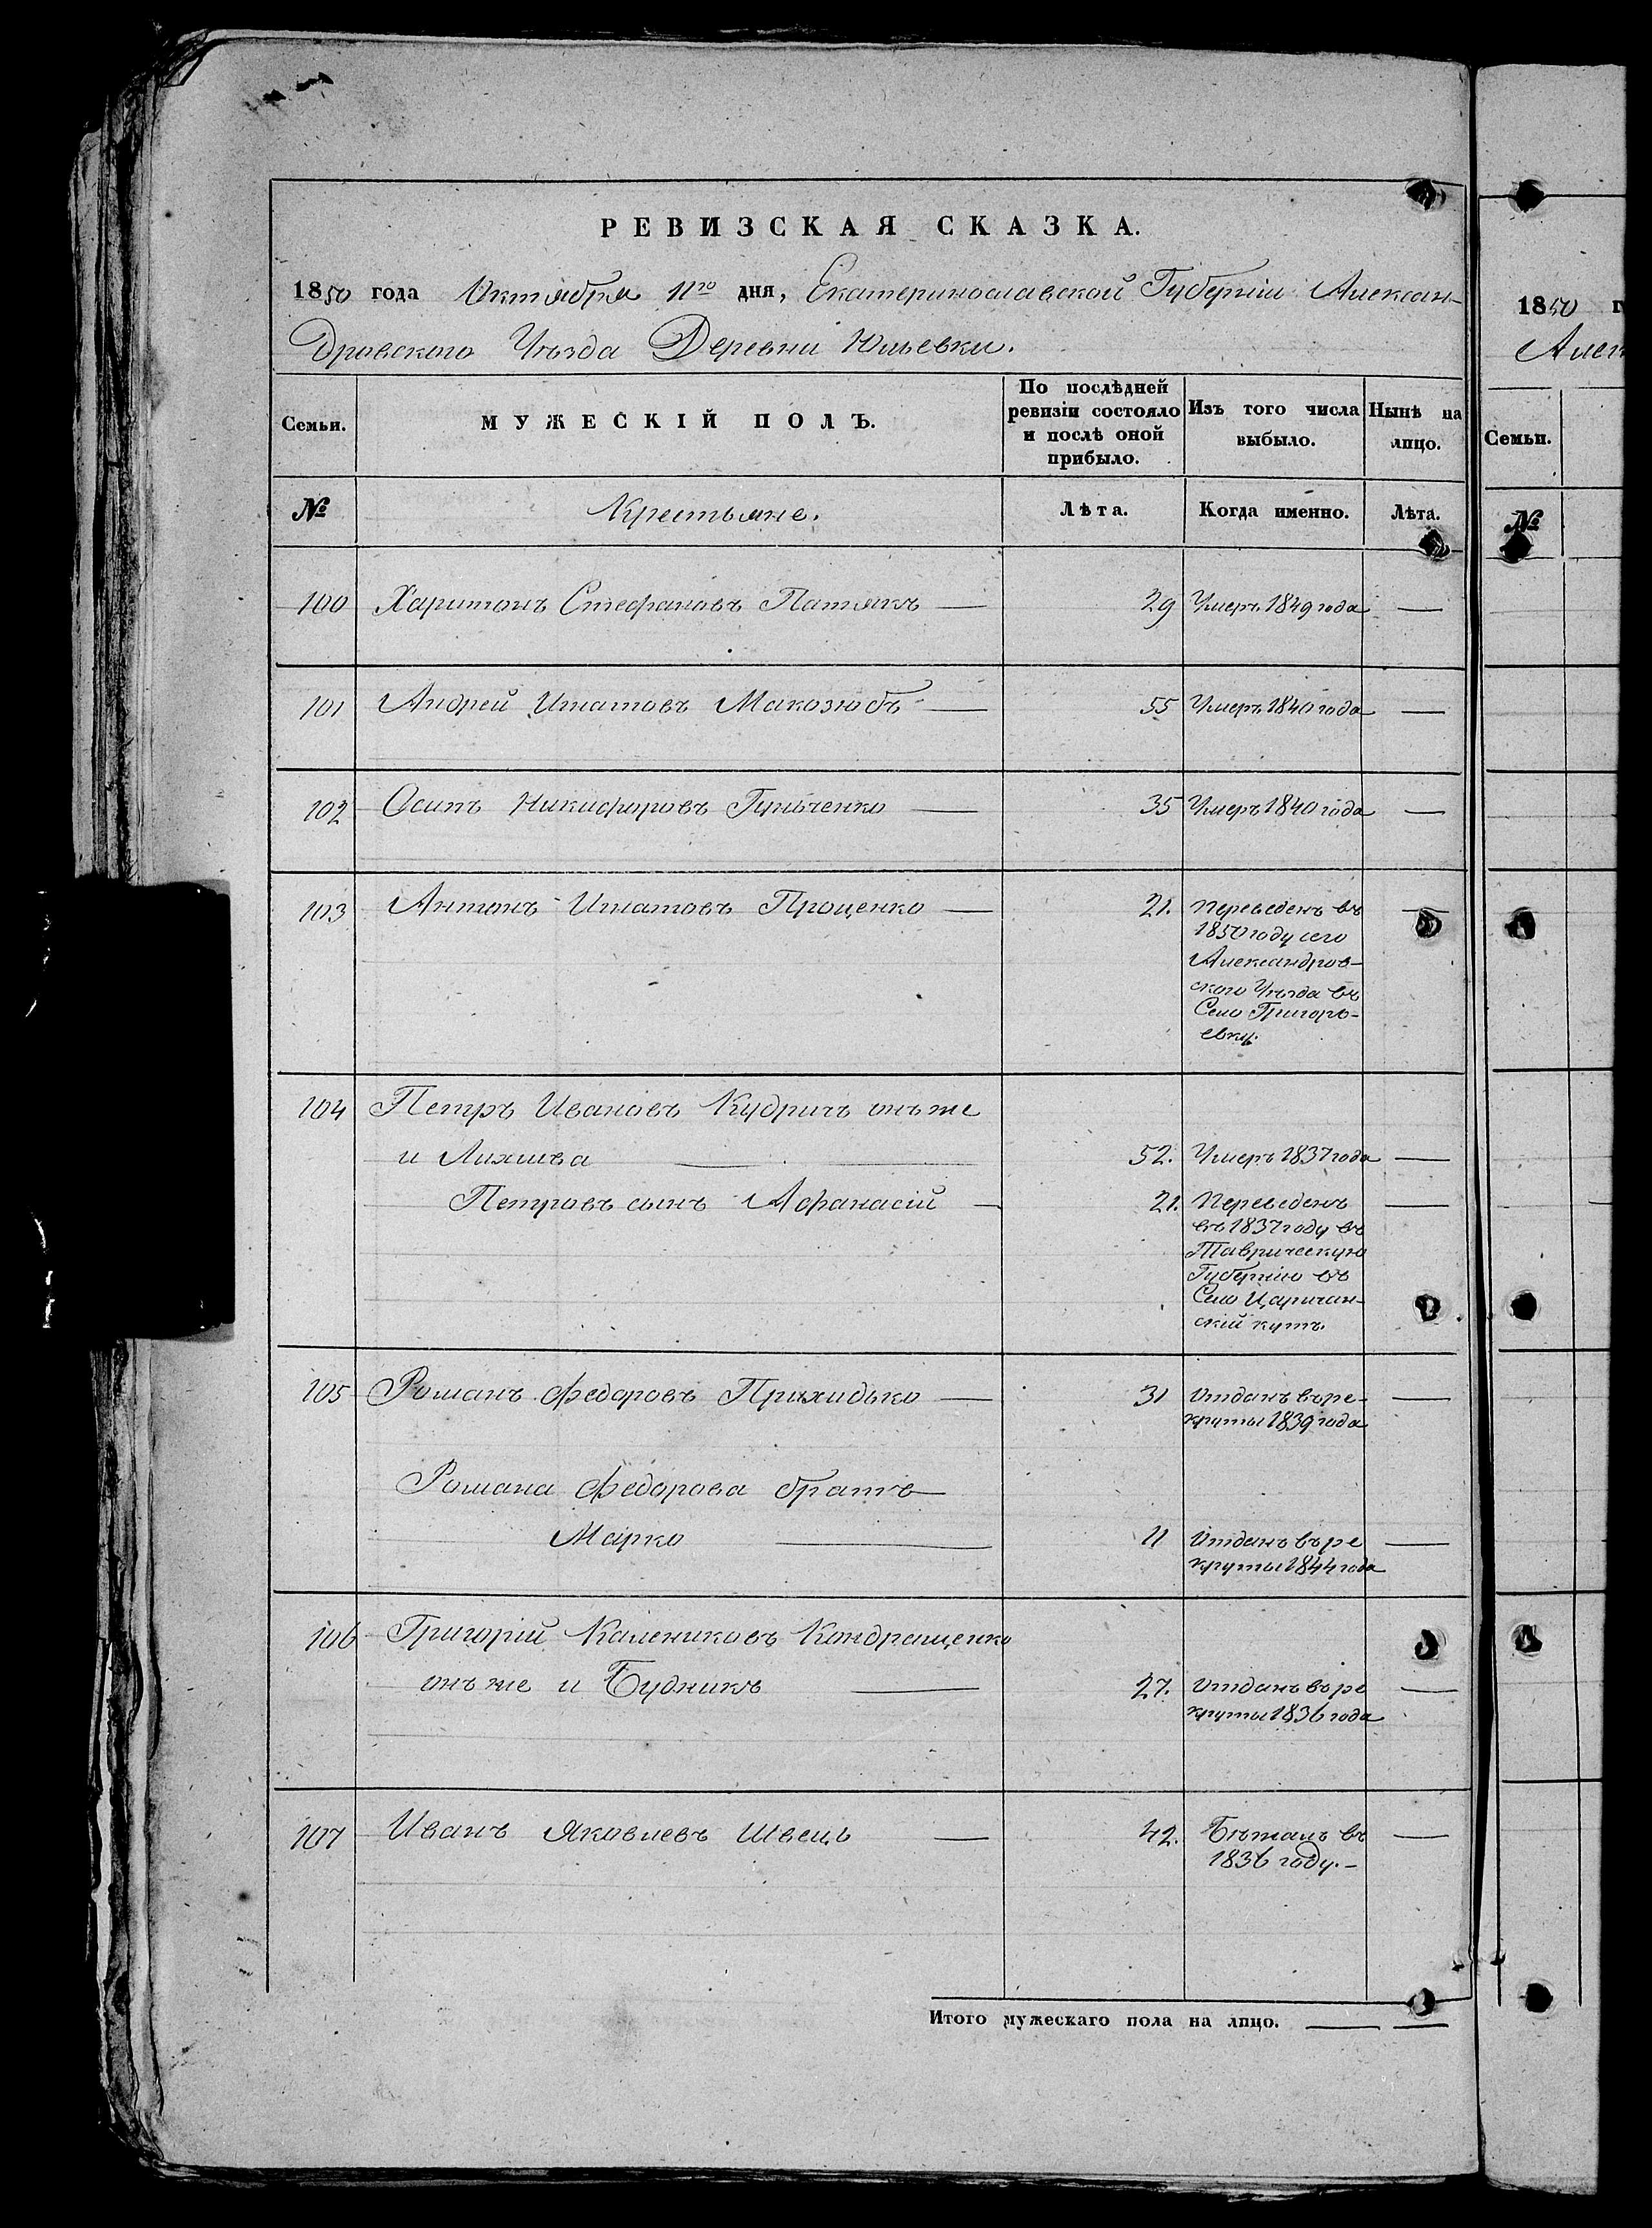 РЕВИЗСКАЯ СКАЗКА.
1850 года Октября 11го дня, Екатеринославской Губерніи Алексан-
дровского Уѣзда Деревни Юльевки.
Семьи. МУЖЕСКІЙ ПОЛЪ. По послѣдней ревизіи состояло и послѣ оной прибыло. Изъ того числа выбыло. Нынѣ на лицо.
№ Крестьяне. Лѣта. Когда именно. Лѣта.
100 Харитонъ Стефановъ Патякъ — 29 Умеръ 1849 года —
101 Андрей Игнатовъ Макозюбъ — 55 Умеръ 1840 года —
102 Осипъ Никифоровъ Гунченко — 35 Умеръ 1840 года —
103 Антонъ Игнатовъ Проценко — 21. Переведенъ въ —
1850 году сего
Александров-
ского Уѣзда въ
Село Григорь-
евку.
104 Петръ Ивановъ Кудричъ онъ же
и Лихшва — 52. Умеръ 1837 года —
Петровъ сынъ Афанасій — 21. Переведенъ —
въ 1837 году въ
Таврическую
Губернію въ
Село Царичан-
скій кутъ.
105 Романъ Федоровъ Прихидько — 31 Отданъ въ ре- —
круты 1839 года
Романа Федорова братъ
Марко — 11 Отданъ въ ре —
круты 1844 года
106 Григорій Калениковъ Кондращенко
онъ же и Будникъ — 27. Отданъ въ ре —
круты 1836 года
107 Иванъ Яковлевъ Швець — 42. Бѣжалъ въ —
1836 году. —
Итого мужескаго пола на лицо. — —
1850 г
Алек
Семьи.
№